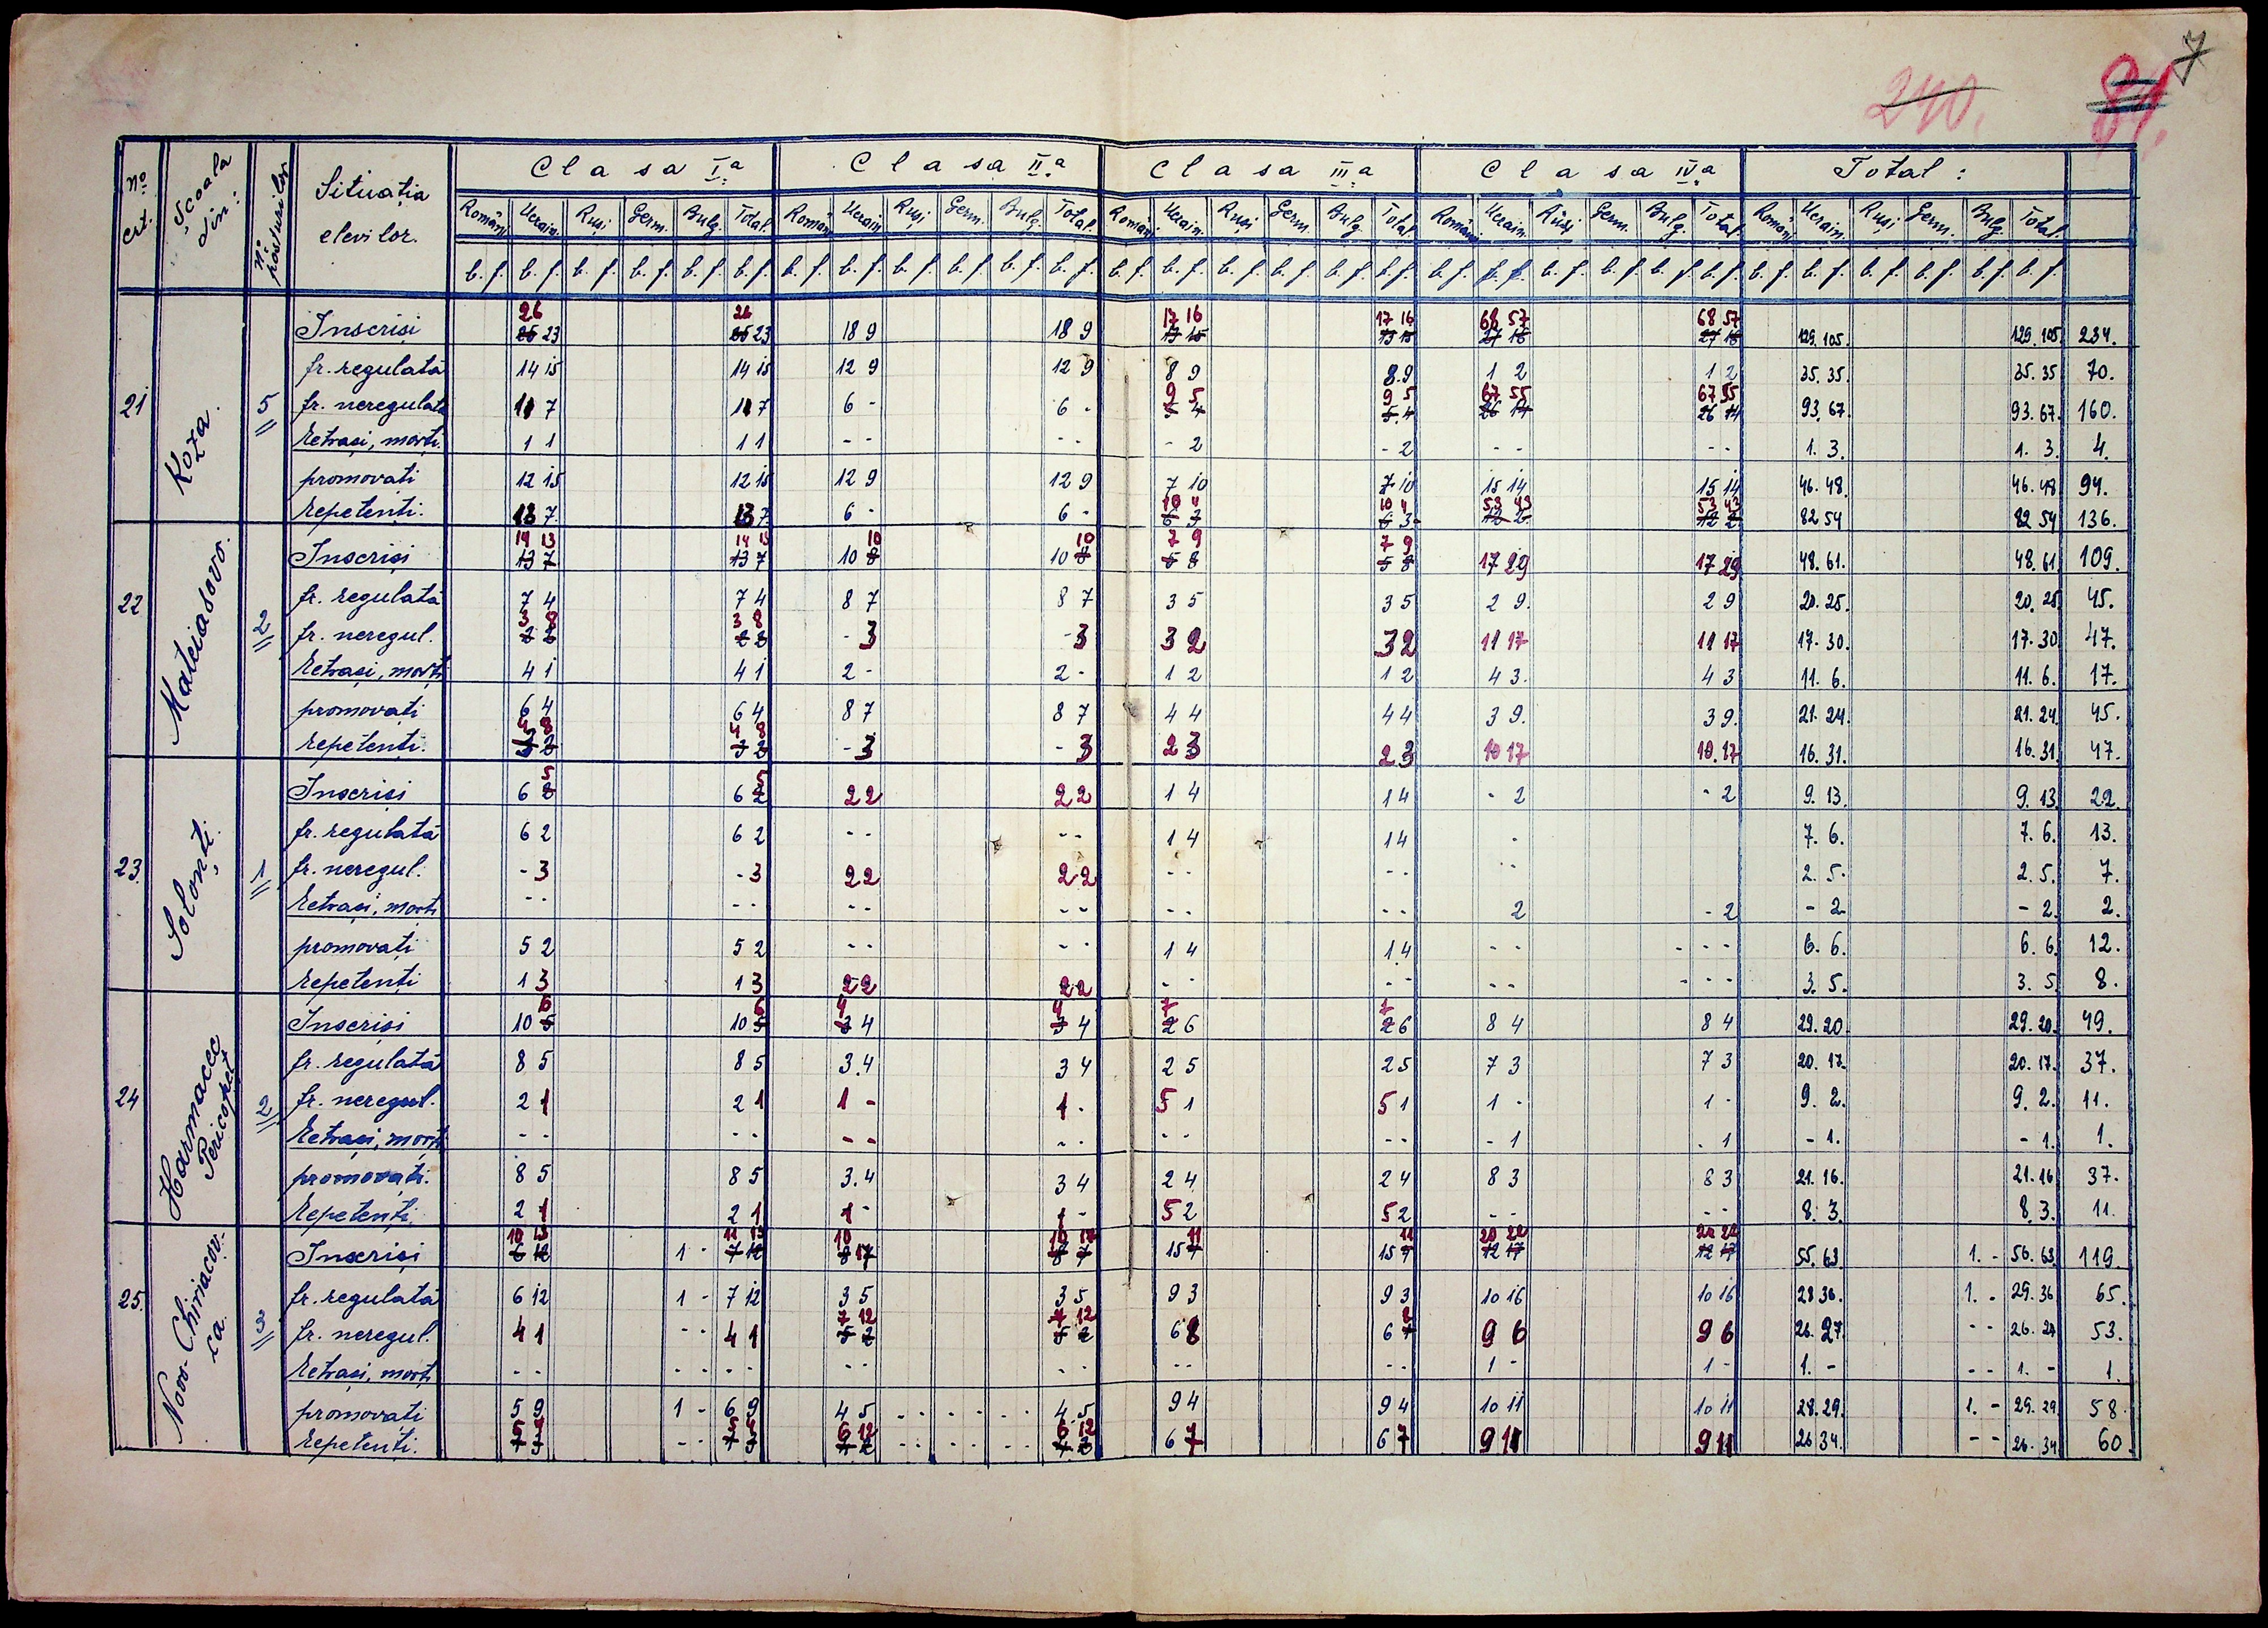 240. 84. 7
No crt. Școala din: No posturilor Situația elevilor. Clasa Iª Clasa IIª Clasa IIIª Clasa IVª Total:
Români Ucrain. Ruși Germ. Bulg. Total. Români Ucrain. Ruși Germ. Bulg. Total. Români Ucrain. Ruși Germ. Bulg. Total. Români Ucrain. Ruși Germ. Bulg. Total. Români Ucrain. Ruși Germ. Bulg. Total.
b. f. b. f. b. f. b. f. b. f. b. f. b. f. b. f. b. f. b. f. b. f. b. f. b. f. b. f. b. f. b. f. b. f. b. f. b. f. b. f. b. f. b. f. b. f. b. f. b. f. b. f. b. f. b. f. b. f. b. f.
26 26 17 16 17 16 68 57 68 57
Inscriși 25 23 25 23 18 9 18 9 13 15 13 15 27 16 27 16 129. 105. 129. 105. 234.
fr. regulată 14 15 14 15 12 9 12 9 8 9 8.9 1 2 1 2 35. 35. 35. 35 70.
9 5 9 5 67 55 67 55
21 Koza. 5 fr. neregulată 11 7 11 7 6 - 6 - 5 4 5.4 26 14 26 14 93. 67. 93. 67. 160.
Retrași, morți. 1 1 1 1 - - - - - 2 - 2 - - - - 1. 3. 1. 3. 4.
promovați 12 15 12 15 12 9 12 9 7 10 7 10 15 14 15 14 46. 48. 46. 48 94.
10 4 10 4 53 43 53 43
Repetenți. 13 7. 13 7. 6 - 6 - 6 3 6 3 12 2 12 2 82 54 82 54 136.
14 13 14 13 10 10 7 9 7 9
Inscriși 13 7 13 7 10 8 10 8 5 8 5 8 17 29 17 29 48. 61. 48. 61 109.
fr. regulată 7 4 7 4 8 7 8 7 3 5 3 5 2 9. 2 9 20. 25. 20. 25 45.
3 8 3 8
22 Mateiasovo. 2 fr. neregul. 2 2 2 2 - 3 - 3 3 2 3 2 11 17 11 17 17. 30. 17. 30 47.
Retrași, morți 4 1 4 1 2 - 2 - 1 2 1 2 4 3. 4 3 11. 6. 11. 6. 17.
promovați 6 4 6 4 8 7 8 7 4 4 4 4 3 9. 3 9. 21. 24. 21. 24. 45.
4 8 4 8
repetenți. 3 2 3 2 - 3 - 3 2 3 2 3 10 17 10. 17 16. 31. 16. 31 47.
5 5
Inscriși 6 2 6 2 2 2 2 2 1 4 1 4 - 2 - 2 9. 13. 9. 13. 22.
fr. regulată 6 2 6 2 - - - - 1 4 1 4 - 7. 6. 7. 6. 13.
23. Solonți. 1 fr. neregul. - 3 - 3 2 2 2 2 - - - - - - 2. 5. 2. 5. 7.
Retrași, morți - - - - - - - - - - - - 2 - 2 - 2 - 2. 2.
promovați 5 2 5 2 - - - - 1 4 1 4 - - - - - 6. 6. 6. 6. 12.
repetenți 1 3 1 3 2 2 2 2 - - - - - - - - - 3. 5. 3. 5. 8.
6 6 4 4 7 7
Inscriși 10 5 10 5 3 4 3 4 2 6 2 6 8 4 8 4 29. 20. 29. 20. 49.
fr. regulată 8 5 8 5 3.4 3 4 2 5 2 5 7 3 7 3 20. 17. 20. 17. 37.
24 Harmacec Pericopet 2 fr. neregul. 2 1 2 1 1 - 1 - 5 1 5 1 1 - 1 - 9. 2. 9. 2. 11.
Retrași, morți - - - - - - - - - - - - - 1 - 1 - 1. - 1. 1.
promovați. 8 5 8 5 3.4 3 4 2 4 2 4 8 3 8 3 21. 16. 21. 16 37.
Repetenți 2 1 2 1 1 - 1 - 5 2 5 2 - - - - 8. 3. 8. 3. 11.
10 13 11 13 10 10 17 11 11 20 22 20 22
Inscriși 6 12 1 - 7 12 8 17 8 7 15 7 15 7 12 17 12 17 55. 63. 1. - 56. 63. 119.
fr. regulată 6 12 1 - 7 12 3 5 3 5 9 3 9 3 10 16 10 16 28 36. 1. - 29. 36 65.
7 12 7 12 8
25. Novo-Chiriacovca. 3 fr. neregul. 4 1 - - 4 1 5 2 5 2 6 8 6 7 9 6 9 6 26. 27 - - 26. 27 53.
Retrași, morți - - - - - - - - - - - - - - 1 - 1 - 1. - - - 1. - 1.
promovați 5 9 1 - 6 9 4 5 - - - - - - 4. 5 9 4 9 4 10 11 10 11 28. 29. 1. - 29. 29 58.
5 4 5 4 6 12 6 12
repetenți. 7 3 - - 7 3 4 2 - - - - - - 4 2 6 7 6 7 9 11 9 11 26 34. - - 26. 34 60